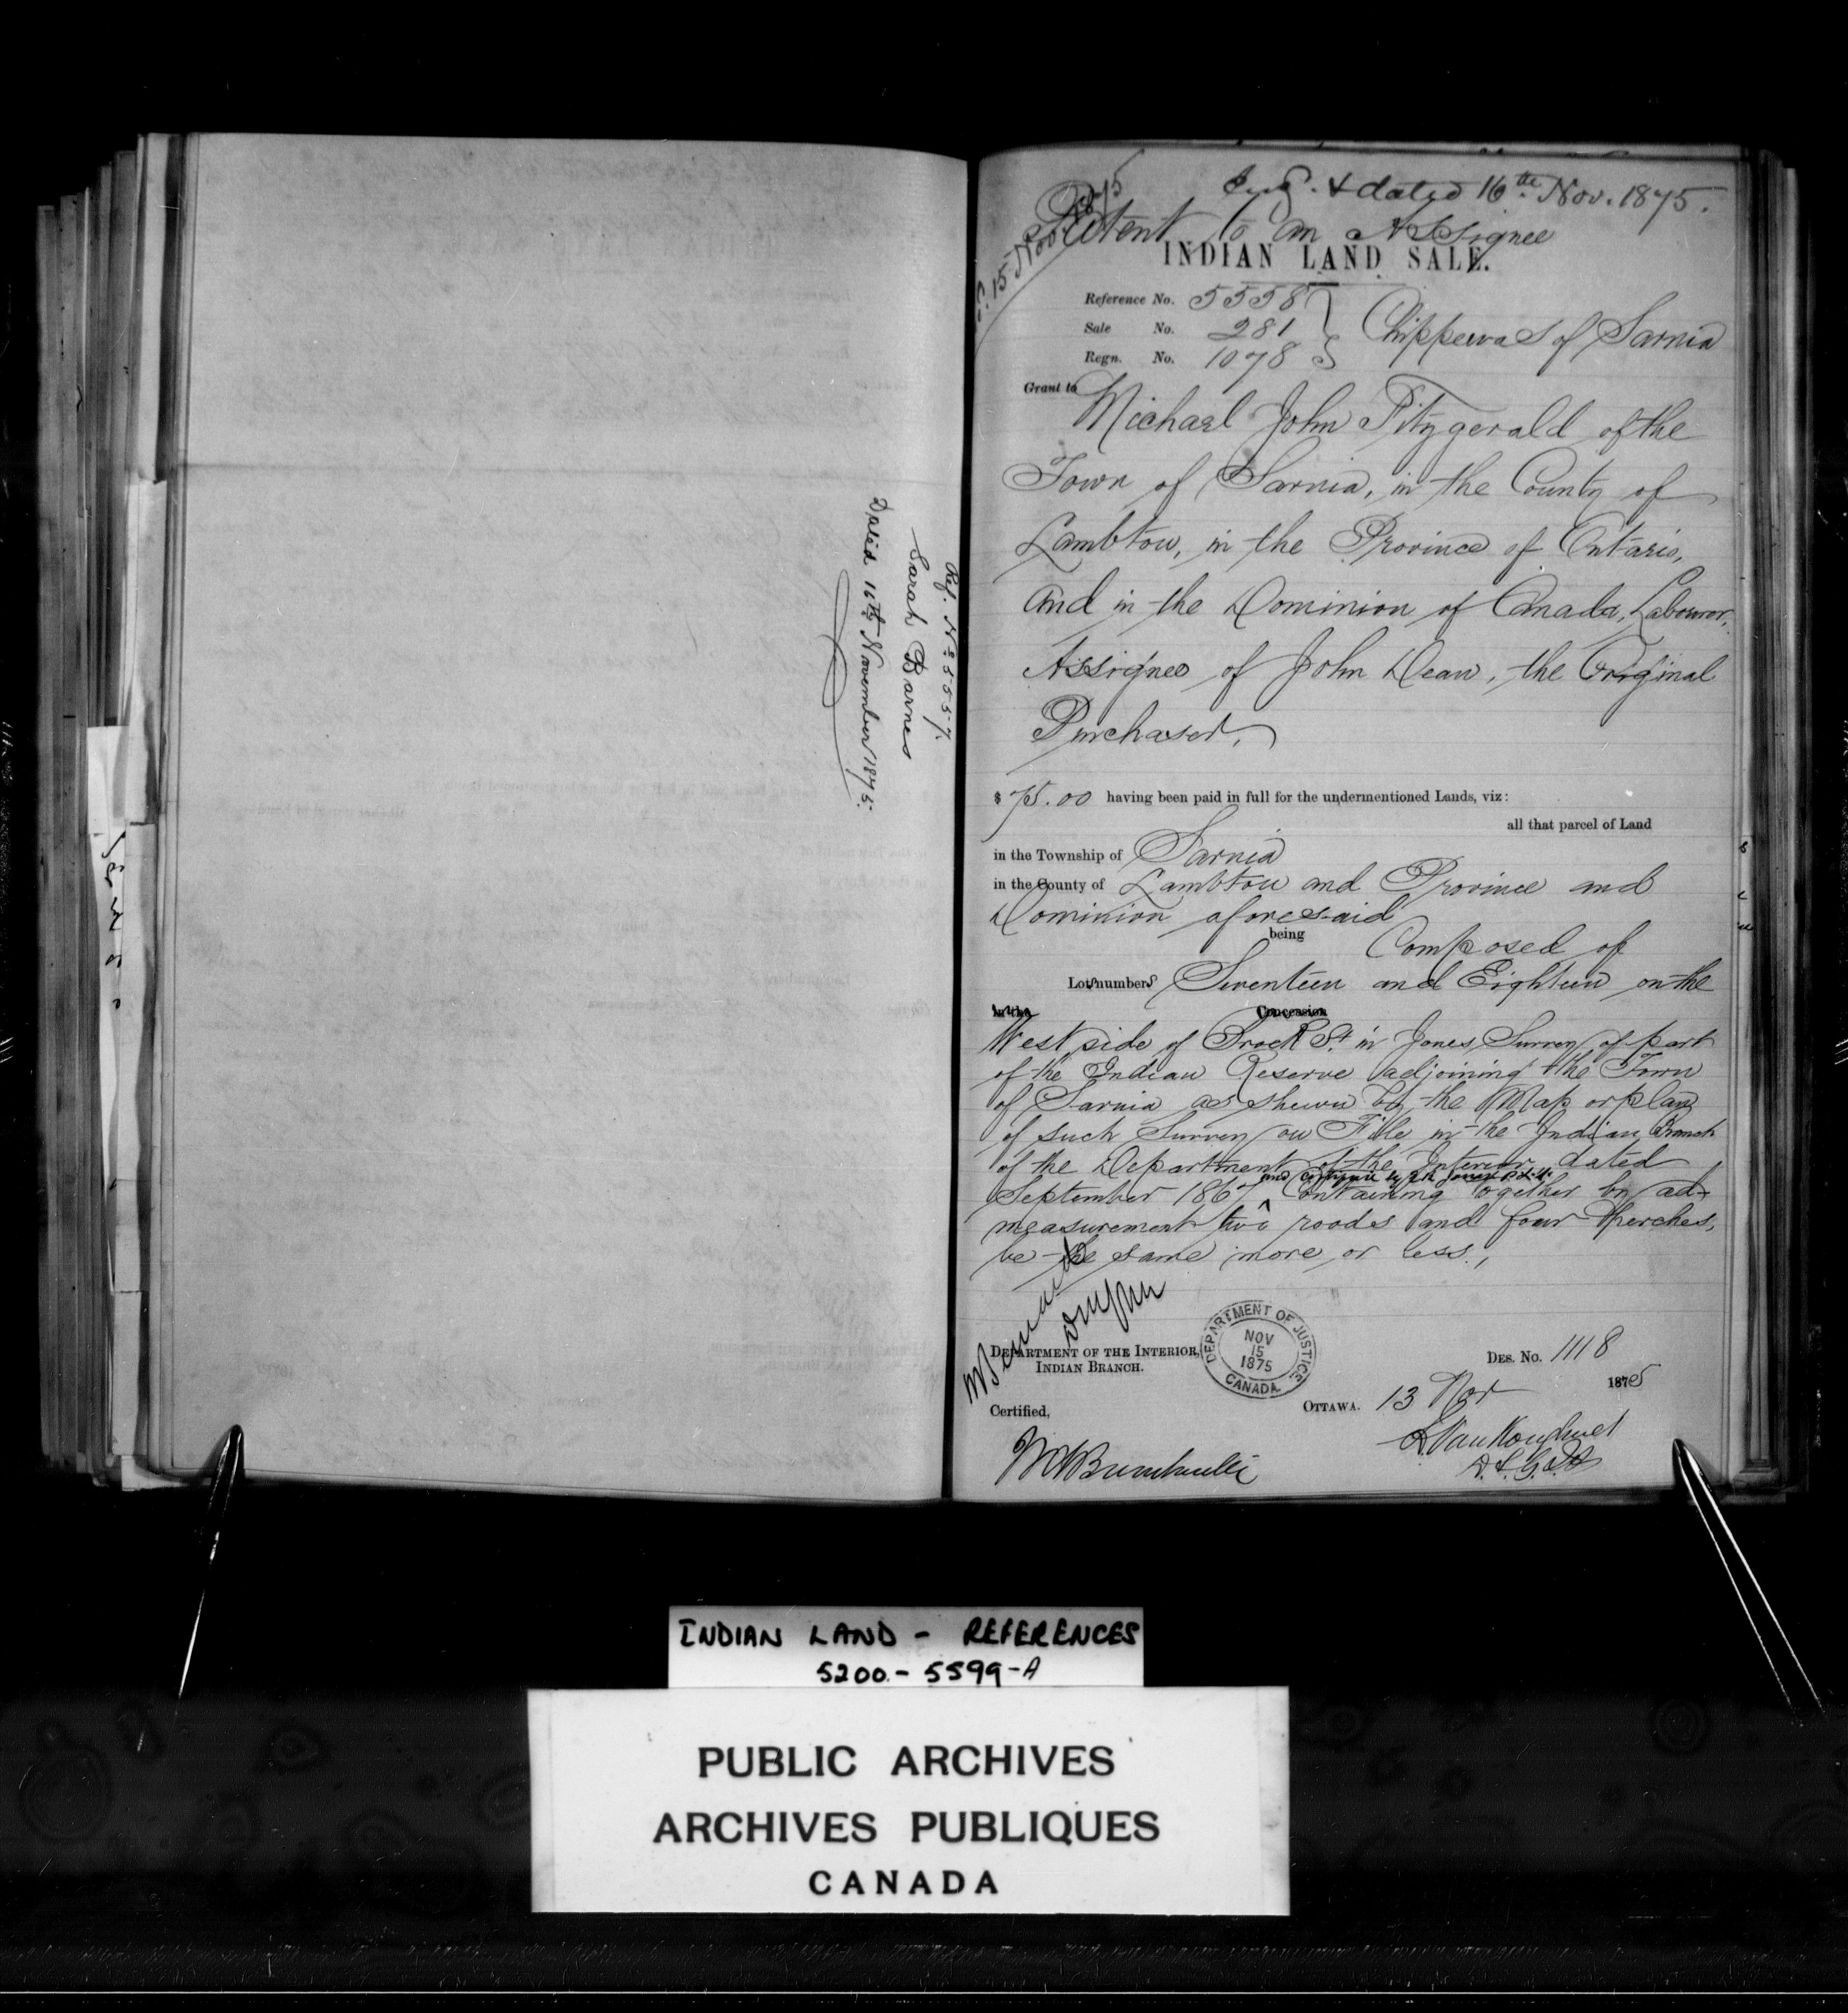 Ref. No 5557.
Sarah Barnes
Dated 16th November 1875.
Eng. & dated 16th Nov. 1875.
15 Nov 1875
Patent to an Assignee
INDIAN LAND SALE.
Reference No. 5558
Sale No. 281
Chippewas of Sarnia
Regn. No. 1078
Grant to
Michael John Fitzgerald of the
Town of Sarnia, in the County of
Lambton, in the Province of Ontario,
and in the Dominion of Canada, Labourer,
Assignee of John Dean, the Original
Purchaser,
$ 75.00 having been paid in full for the undermentioned Lands, viz:
all that parcel of Land
in the Township of Sarnia
in the County of Lambton and Province and
Dominion aforesaid
being Composed of
Lots numbers Seventeen and Eighteen on the
in the Concession
West side of Brock St. in Jones Survey of part
of the Indian Reserve adjoining the Town
of Sarnia as shewn by the Map or plan
of such Survey on File in the Indian Branch
of the Department of the Interior dated
September 1867 and Containing together by ad-
measurement two roods and four perches,
be the same more or less.,
DEPARTMENT OF THE INTERIOR,
INDIAN BRANCH.
DEPARTMENT OF JUSTICE
NOV
15
1875
CANADA
DES. No. 1118
OTTAWA. 13 Nov 1875
Certified,
L Vankoughnet
D.S.G.I.A
INDIAN LAND - REFERENCES
5200 - 5599-A
PUBLIC ARCHIVES
ARCHIVES PUBLIQUES
CANADA